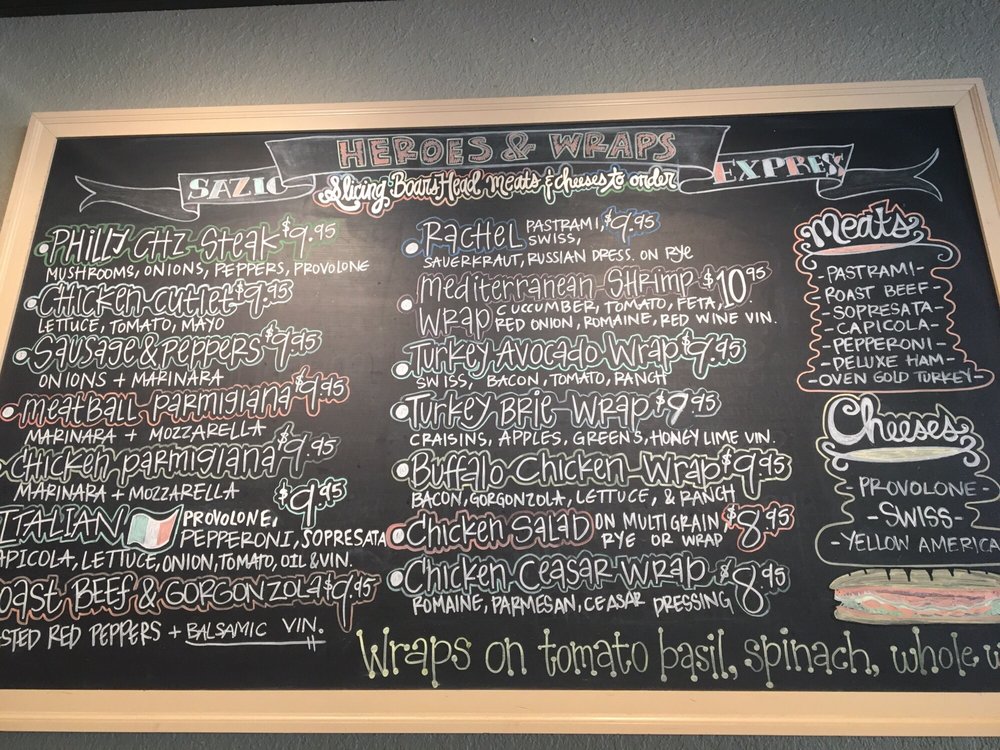 HEROES & WRAPS
SAZIO EXPRESS
Slicing Boars Head meats & cheeses to order
PHILLY CHZ STEAK $9.95
MUSHROOMS, ONIONS, PEPPERS, PROVOLONE
CHICKEN CUTLET $9.95
LETTUCE, TOMATO, MAYO
SAUSAGE & PEPPERS $9.95
ONIONS + MARINARA
MEATBALL PARMIGIANA $9.95
MARINARA + MOZZARELLA
CHICKEN PARMIGIANA $9.95
MARINARA + MOZZARELLA
ITALIAN PROVOLONE, $9.95
PEPPERONI, SOPRESATA
APICOLA, LETTUCE, ONION, TOMATO, OIL & VIN.
OAST BEEF & GORGONZOLA $9.95
STED RED PEPPERS + BALSAMIC VIN.
RACHEL PASTRAMI, $9.95
SWISS,
SAUERKRAUT, RUSSIAN DRESS. ON RYE
MEDITERRANEAN SHRIMP $10.95
WRAP CUCUMBER, TOMATO, FETA,
RED ONION, ROMAINE, RED WINE VIN.
TURKEY AVOCADO WRAP $9.95
SWISS, BACON, TOMATO, RANCH
TURKEY BRIE WRAP $9.95
CRAISINS, APPLES, GREENS, HONEY LIME VIN.
BUFFALO CHICKEN WRAP $9.95
BACON, GORGONZOLA, LETTUCE, & RANCH
CHICKEN SALAD ON MULTIGRAIN, $8.95
RYE OR WRAP
CHICKEN CEASAR WRAP $8.95
ROMAINE, PARMESAN, CEASAR DRESSING
Meats
- PASTRAMI -
- ROAST BEEF -
- SOPRESATA -
- CAPICOLA -
- PEPPERONI -
- DELUXE HAM -
- OVEN GOLD TURKEY -
Cheeses
- PROVOLONE -
- SWISS -
- YELLOW AMERICA
Wraps on tomato basil, spinach, whole w